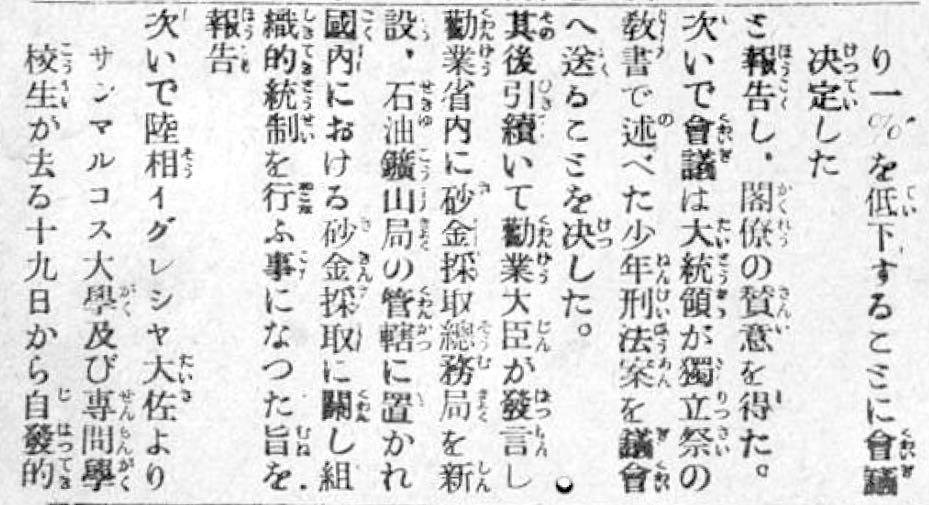 り一％を低下することに會議
決定した
と報告し、閣僚の賛意を得た。
次いで會議は大統領が獨立祭の
敎書で述べた少年刑法案を議會
へ送ることを決した。
其後引續いて勸業大臣が發言し
勸業省内に砂金採取總務局を新
設、石油鑛山局の管轄に置かれ
國内における砂金採取に關し組
織的統制を行ふ事になつた旨を
報告
次いで陸相イグレシヤ大佐より
サンマルコス大學及び專門學
校生が去る十九日から自發的